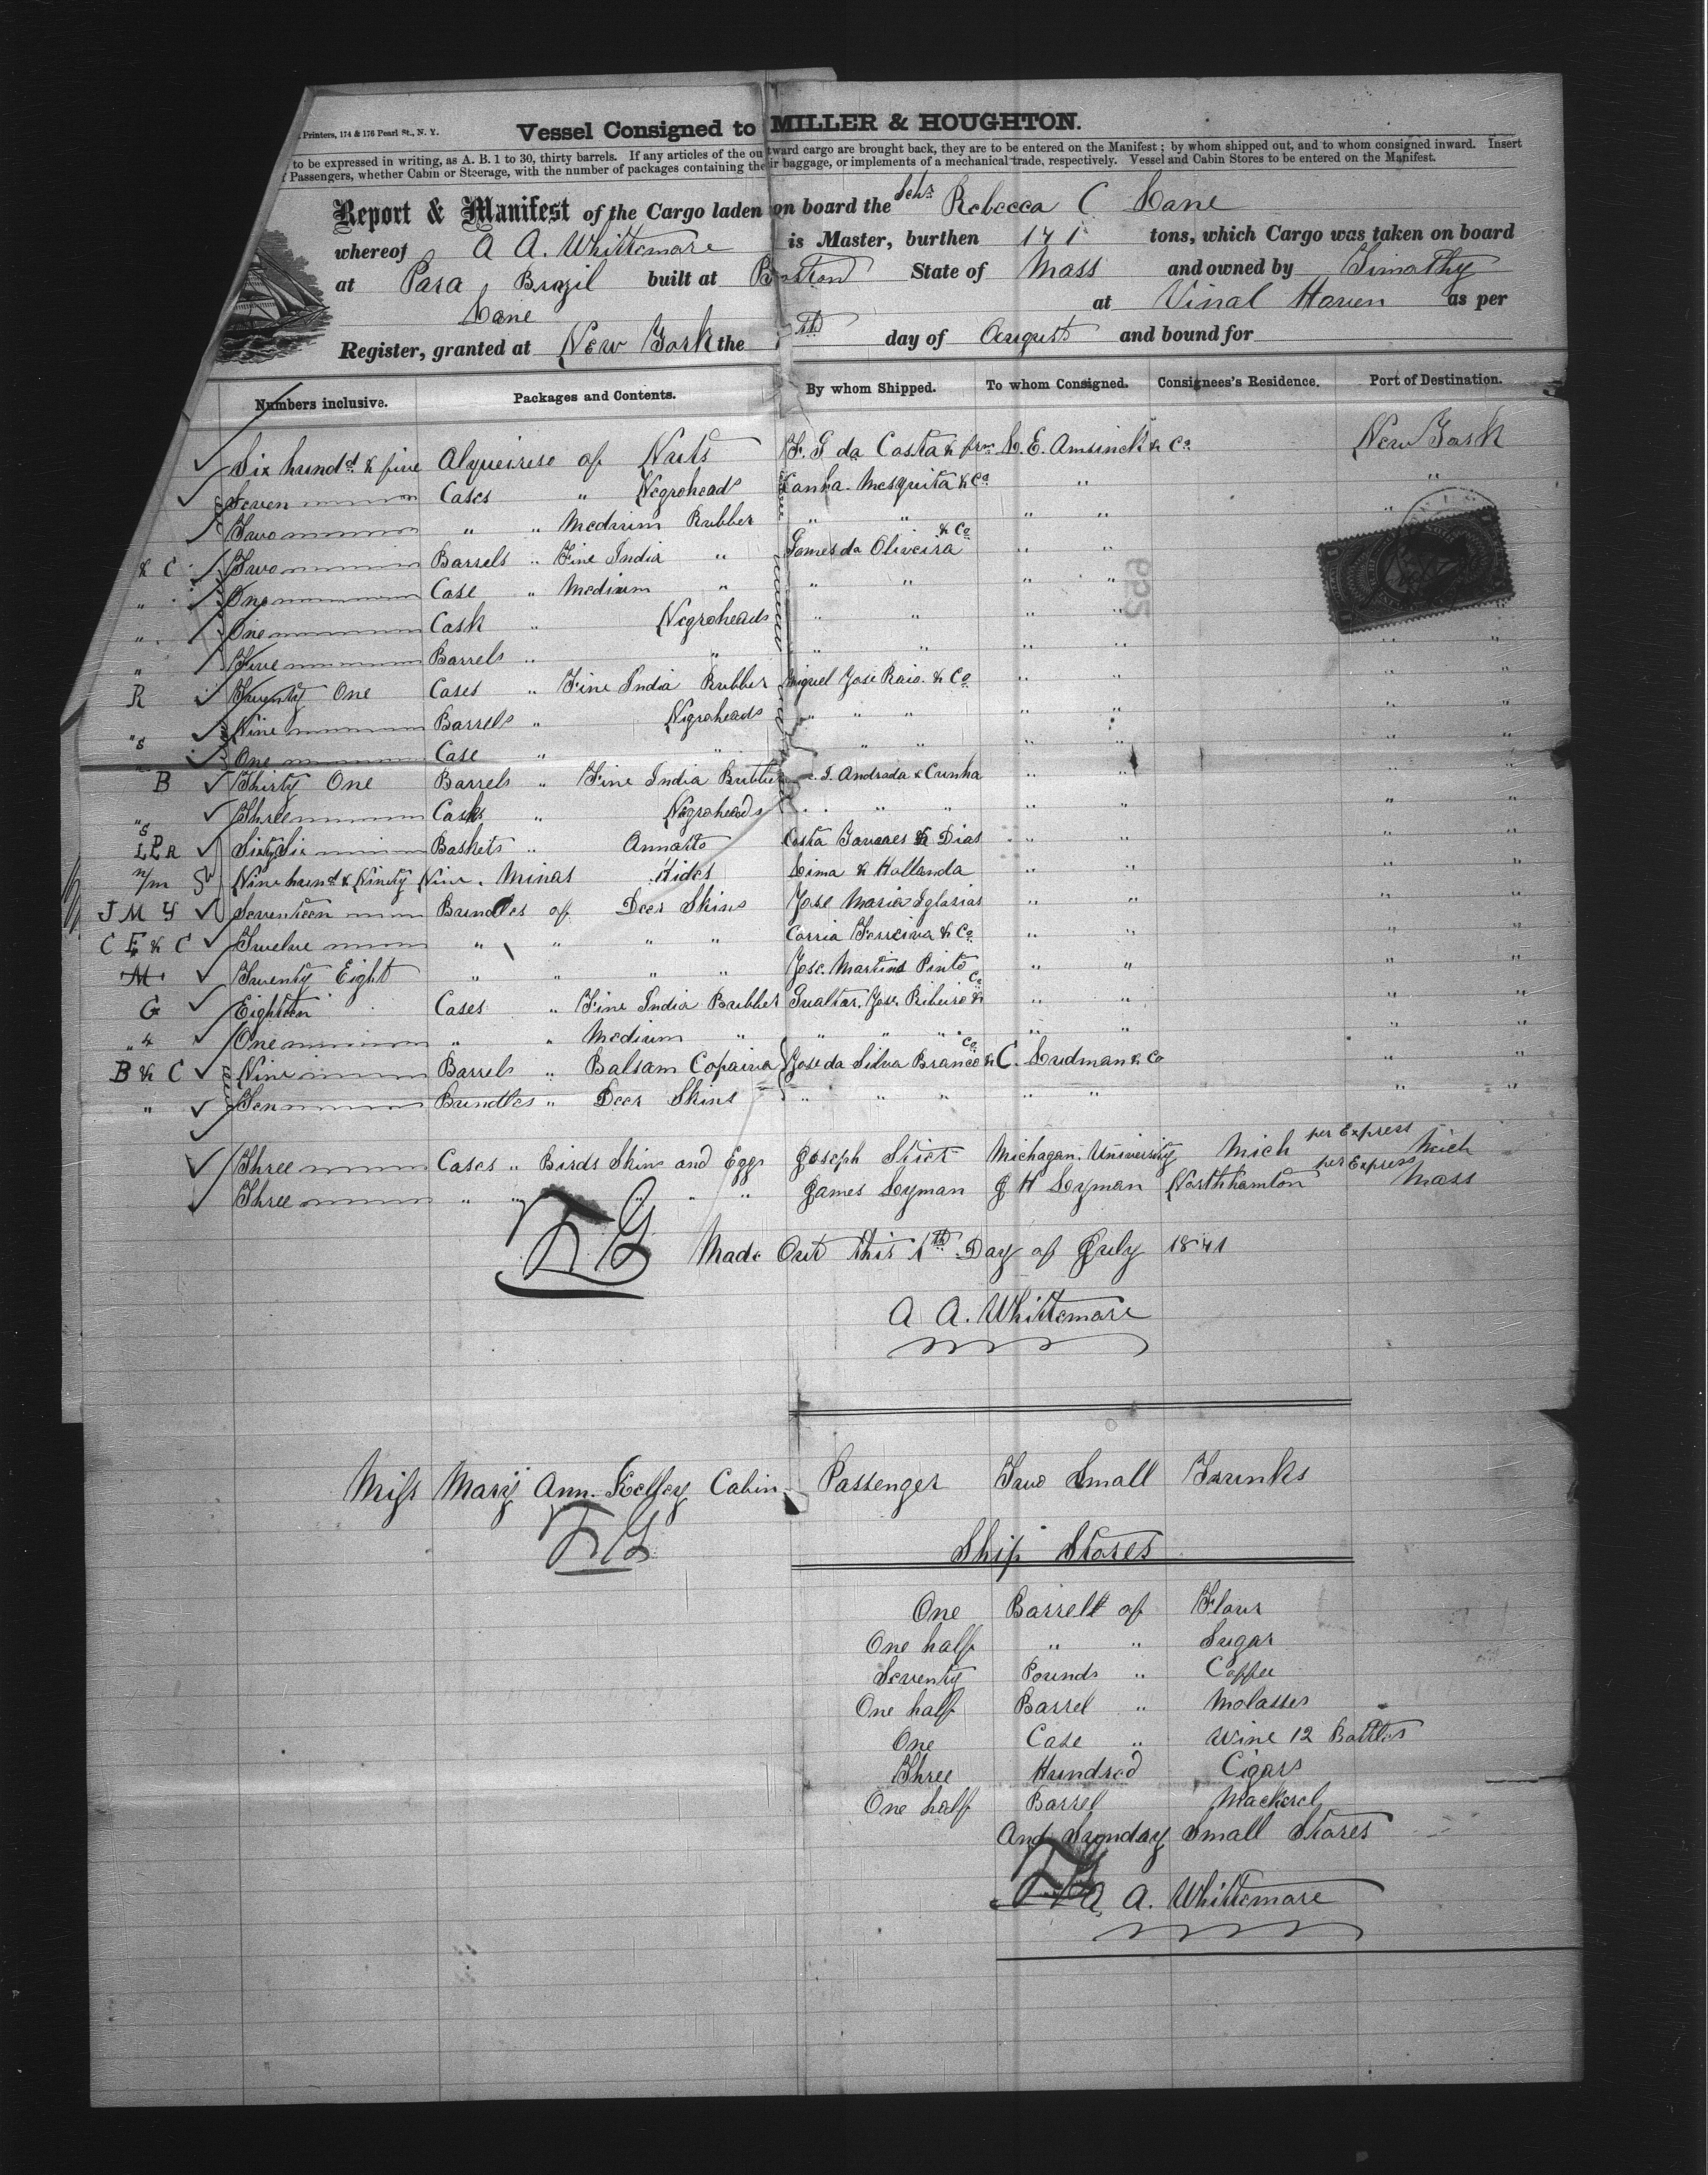 Printers, 174 & 176 Pearl St., N. Y.
Vessel Consigned to MILLER & HOUGHTON.
to be expressed in writing, as A. B. 1 to 30, thirty barrels. If any articles of the outward cargo are brought back, they are to be entered on the Manifest; by whom shipped out, and to whom consigned inward. Insert
Passengers, whether Cabin or Steerage, with the number of packages containing their baggage, or implements of a mechanical trade, respectively. Vessel and Cabin Stores to be entered on the Manifest.
Report & Manifest of the Cargo laden on board the Schr Rebecca C Lane
whereof A A. Whittemore is Master, burthen 171 tons, which Cargo was taken on board
at Para Brazil built at State of Mass and owned by Timothy
Lane at Vinal Haven as per
Register, granted at New York the th day of August and bound for
Numbers inclusive. Packages and Contents. By whom Shipped. To whom Consigned. Consignees's Residence. Port of Destination.
Six hundd & five Alqueires of Nuts da Costa & L. E. Amsinck & Co New York
Seven Cases " Negroheads Mesquita & Co " "
Two " " Medium Rubber " " " "
& C Two Barrels " Fine India " Gomes da Oliveira & Co " "
" One Case " Medium " " " " "
" One Cask " Negroheads " " " " "
" Five Barrels " " " " " "
R Twenty One Cases " Fine India Rubber Miguel Jose Raio & Co " " " "
"s Nine Barrels " Negroheads " " " " " " "
One Case " " " " " " " "
B Thirty One Barrels " Fine India Rubber Andrada & Cunha " " " "
"s Three Casks " Negroheads " " " " " "
LPR Sixty Six Baskets " Annatto Costa Tavares & Dias " " " "
n/m Nine hund & Ninety Nine Minas Hides Lima & Hollanda " " " "
J M Y Seventeen Bundles of Deer Skins Jose Maria Iglasias " " " "
C F & C Twelve " " " " Corria Ferreira & Co " " " "
M Twenty Eight " " " " Jose Martins Pinto " " " "
G Eighteen Cases " Fine India Rubber Gualtar Jose Ribeiro & Co " " " "
"4 One " " Medium " " " " " " " "
B & C Nine Barrels " Balsam Copaiva Jose da Silva Branco & Co C. Ludman & Co " "
" Ten Bundles " Deer Skins " " " " " " "
Three Cases " Birds Skins and Eggs Joseph Michagan University Mich per Express Mich
Three " " " " " James Lyman J H Lyman Northhamton per Express Mass
Made Out this 1th Day of July 1871
A A. Whittemore
Miss Mary Ann Kelley Cabin Passenger Two Small Trunks
Ship Stores
One Barrell of Flour
One half " " Sugar
Seventy Pounds " Coffee
One half Barrel " Molasses
One Case " Wine 12 Bottles
Three Hundred Cigars
One half Barrel Mackerel
And Sunday Small Stores
A. A. Whittemore